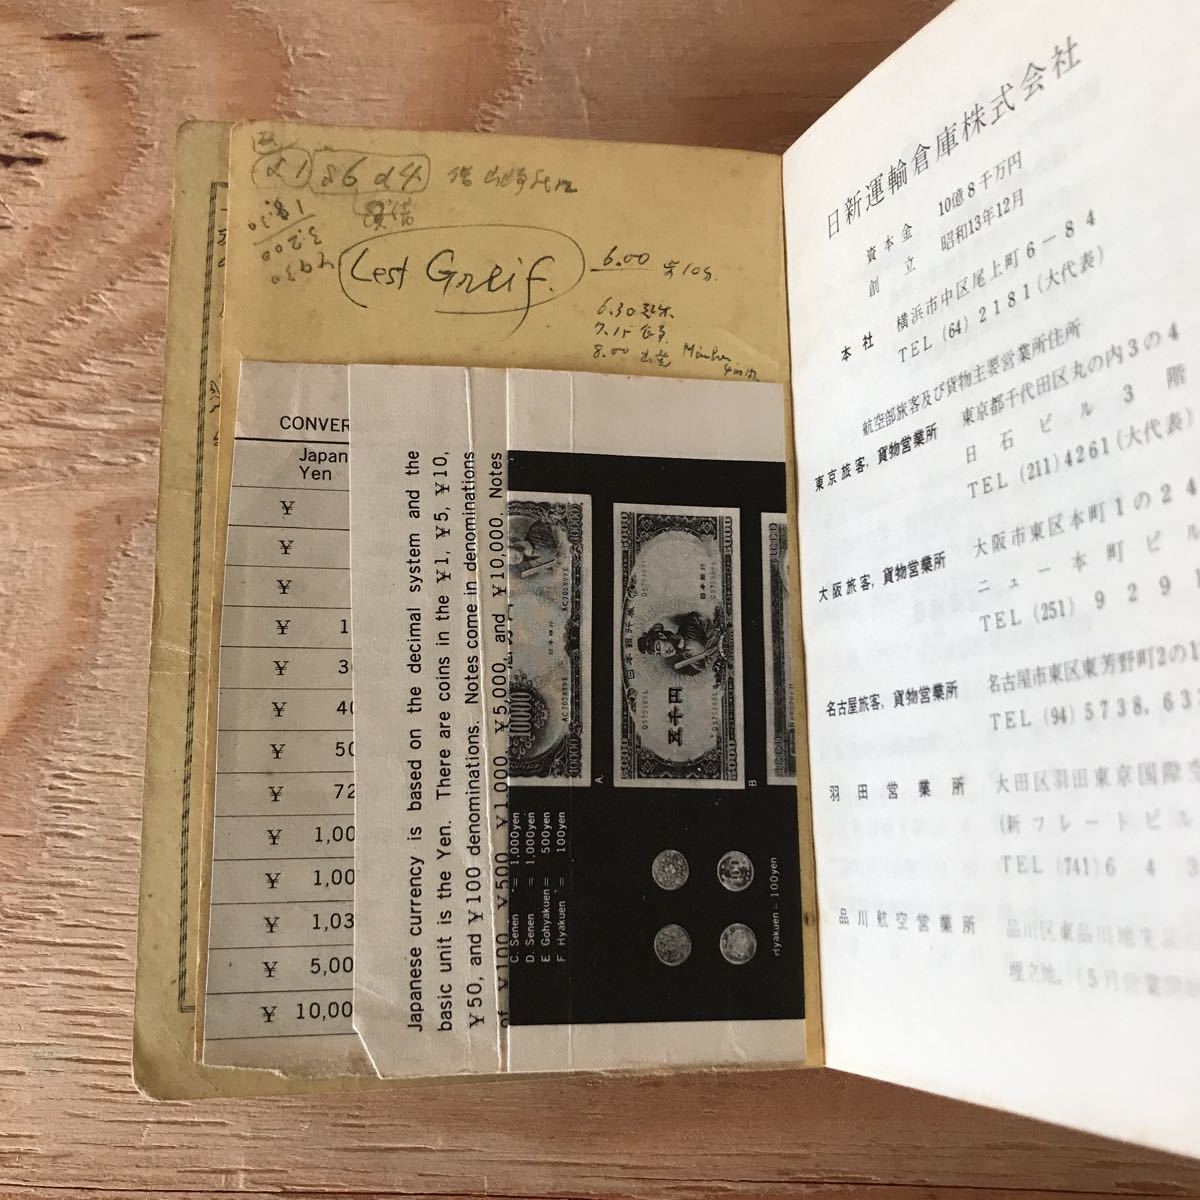 α1
86 α4
Lest Greif.
6.00
6.30 起床
7.15 食事
8.00 出発
München
CONVER
Japan
Yen
¥
¥
¥
¥ 1
¥ 30
¥ 40
¥ 50
¥ 72
¥ 1,00
¥ 1,00
¥ 1,03
¥ 5,00
¥ 10,00
Japanese currency is based on the decimal system and the
basic unit is the Yen. There are coins in the ¥1, ¥5, ¥10,
¥50, and ¥100 denominations. Notes come in denominations
of ¥100, ¥500, ¥1,000, ¥5,000, and ¥10,000. Notes
10000
AC705899E
日本銀行
AC705899E
10000
A.
5000
日本銀行券
五千円
日本銀行
5000
B
C. Senen = 1,000yen
D. Senen = 1,000yen
E Gohyakuen = 500yen
F Hyakuen = 100yen
100
Hyakuen = 100yen
日新運輸倉庫株式会社
資本金 10億8千万円
創立 昭和13年12月
本社 横浜市中区尾上町6-84
TEL (64) 2181(大代表)
航空部旅客及び貨物主要営業所住所
東京旅客,貨物営業所 東京都千代田区丸の内3の4
日石ビル3階
TEL (211)4261(大代表)
大阪旅客,貨物営業所 大阪市東区本町1の24
ニュー本町ビル
TEL (251) 929
名古屋旅客,貨物営業所 名古屋市東区東芳野町2の1
TEL (94) 5738, 63
羽田営業所 大田区羽田東京国際空
(新フレートビル
TEL (741) 6 4 3
品川航空営業所 品川区東品川地先
埋立地。(5月営業開